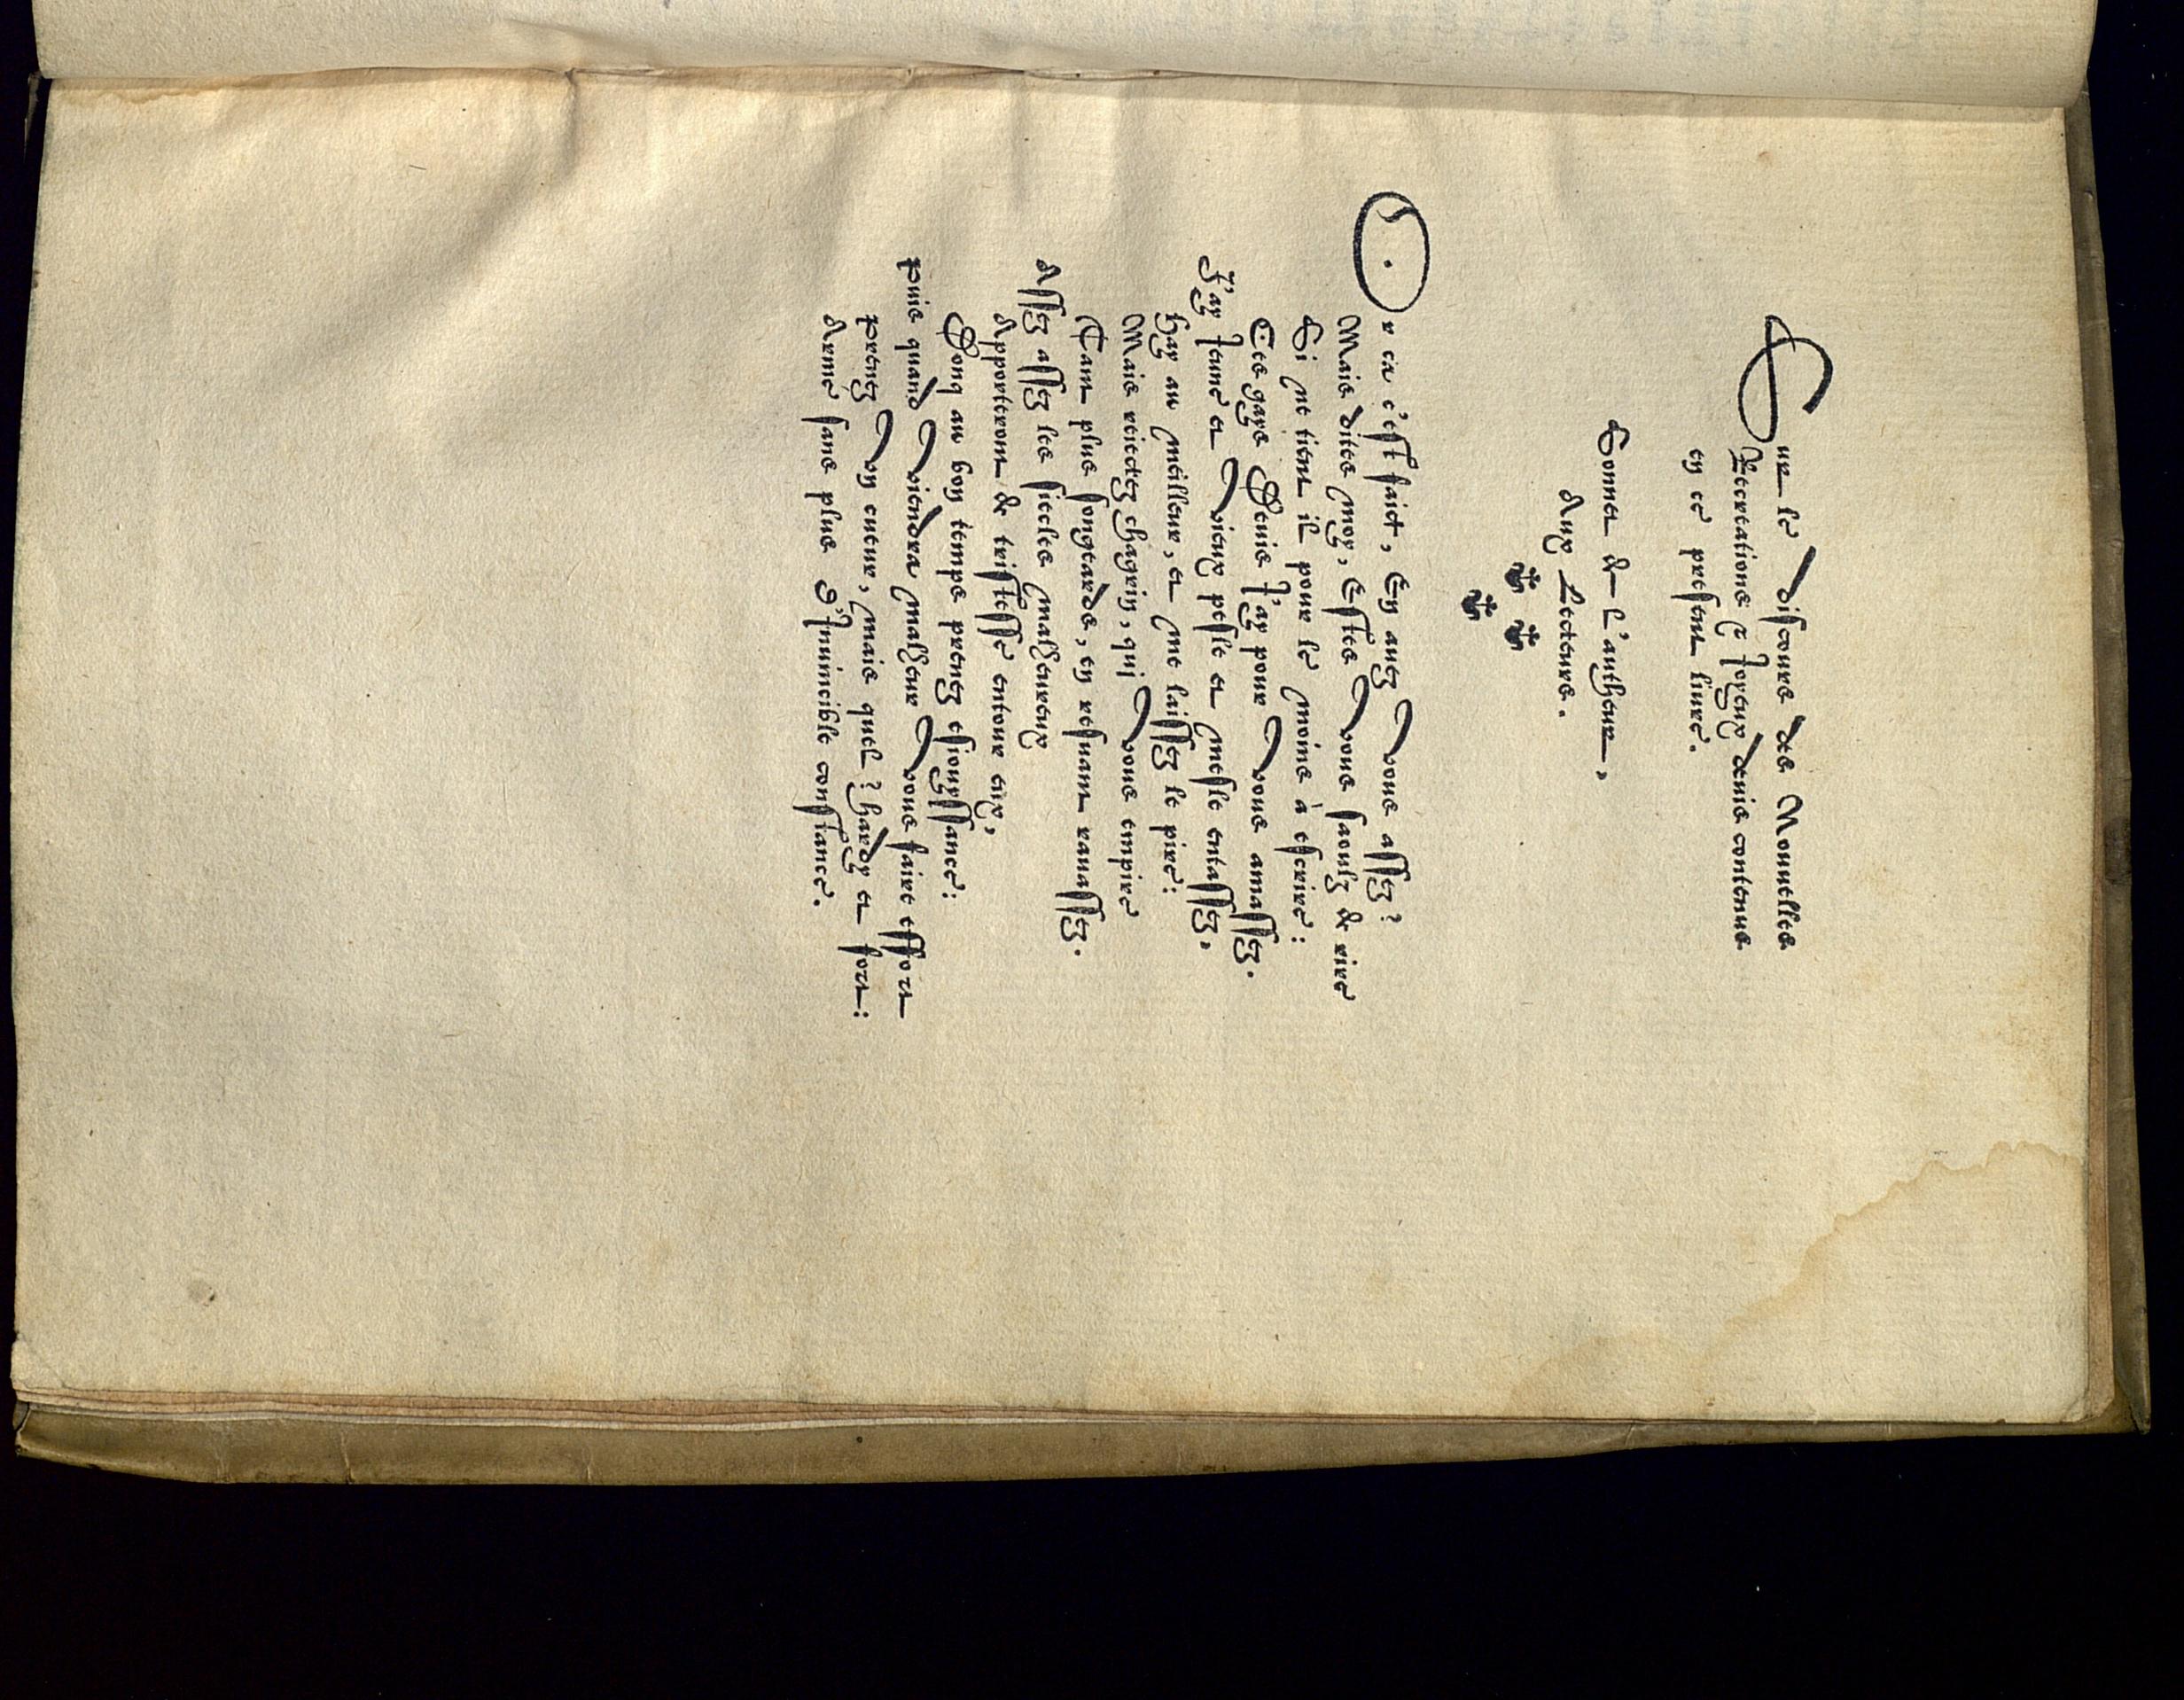 Sur le discours des Nouuelles
Recreations & Ioyeux deuis contenus
en ce present liure.
Sonnet de l'autheur,
Aux Lecteurs.
Or ca c'est faict, En auez vous assez?
Mais dites moy, Estes vous saoulz de rire
Si ne tient il pour le moins à escrire:
Ces gays Deuis i'ay pour vous amassez.
I'ay Ieune et vieux pesle et mesle entassez,
Hay au meilleur, et me laissez le pire:
Mais reiectez chagrin, qui vous empire
Tant plus songeards, en resuant rauassez.
Assez assez les siecles malheureux
Apporteront de tristesse entour eux,
Donq au bon temps prenez esiouyssance:
Puis quand viendra malheur vous faire effort
Prenez vn cueur, mais quel? hardy et fort:
Armé sans plus d'Inuincible constance.